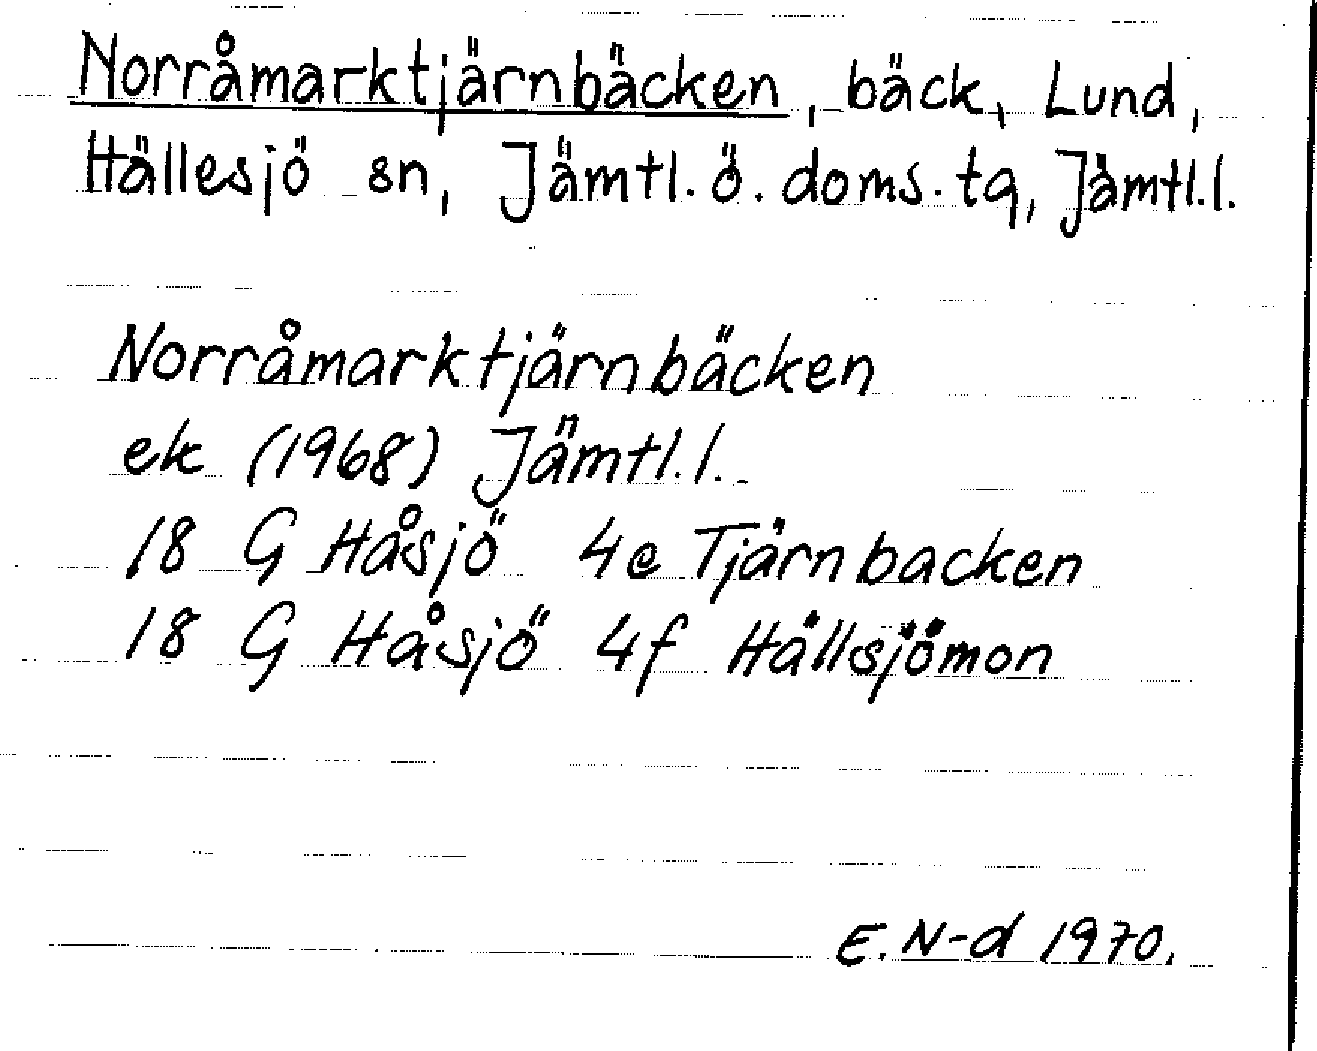 Norråmarktjärnbäcken, bäck, Lund,
Hällesjö sn, Jämtl. ö. doms. tq, Jämtl.l.
Norråmarktjärnbäcken
ek (1968) Jämtl.l.
18 G Håsjö 4e Tjärnbacken
18 G Håsjö 4f Hällsjömon
E. N-d 1970.